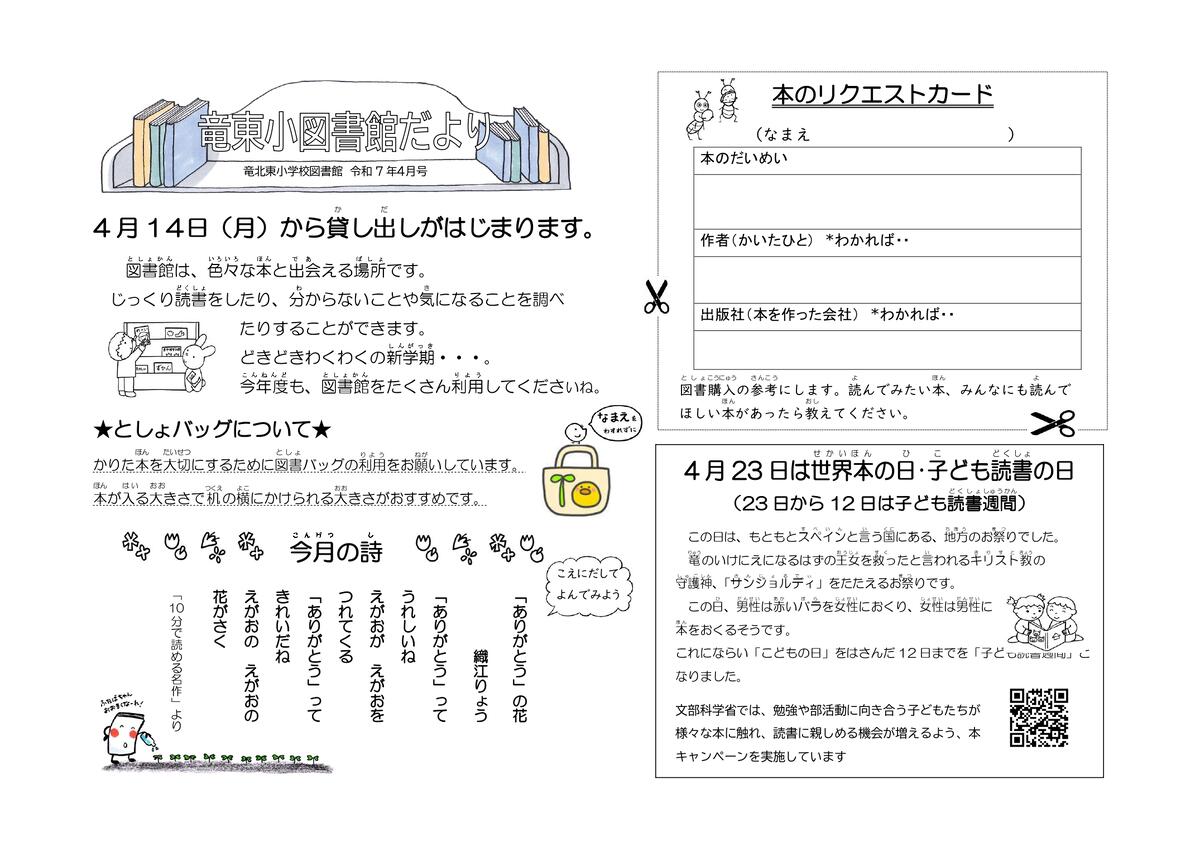 竜東小図書館だより
竜北東小学校図書館 令和7年4月号
4月14日（月）から貸し出しがはじまります。
図書館は、色々な本と出会える場所です。
じっくり読書をしたり、分からないことや気になることを調べ
たりすることができます。
どきどきわくわくの新学期・・・。
今年度も、図書館をたくさん利用してくださいね。
★としょバッグについて★
なまえを
わすれずに
かりた本を大切にするために図書バッグの利用をお願いしています。
本が入る大きさで机の横にかけられる大きさがおすすめです。
今月の詩
こえにだして
よんでみよう
「ありがとう」の花
織江りょう
「ありがとう」って
うれしいね
えがおが えがおを
つれてくる
「ありがとう」って
きれいだね
えがおの えがおの
花がさく
「10分で読める名作」より
ふたばちゃん
おおきくな～れ!
本のリクエストカード
（なまえ ）
本のだいめい
作者（かいたひと） *わかれば・・
出版社（本を作った会社） *わかれば・・
図書購入の参考にします。読んでみたい本、みんなにも読んで
ほしい本があったら教えてください。
4月23日は世界本の日・子ども読書の日
（23日から12日は子ども読書週間）
この日は、もともとスペインと言う国にある、地方のお祭りでした。
竜のいけにえになるはずの王女を救ったと言われるキリスト教の
守護神、「サンジョルディ」をたたえるお祭りです。
この日、男性は赤いバラを女性におくり、女性は男性に
本をおくるそうです。
これにならい「こどもの日」をはさんだ12日までを「子ども読書週間」と
なりました。
文部科学省では、勉強や部活動に向き合う子どもたちが
様々な本に触れ、読書に親しめる機会が増えるよう、本
キャンペーンを実施しています